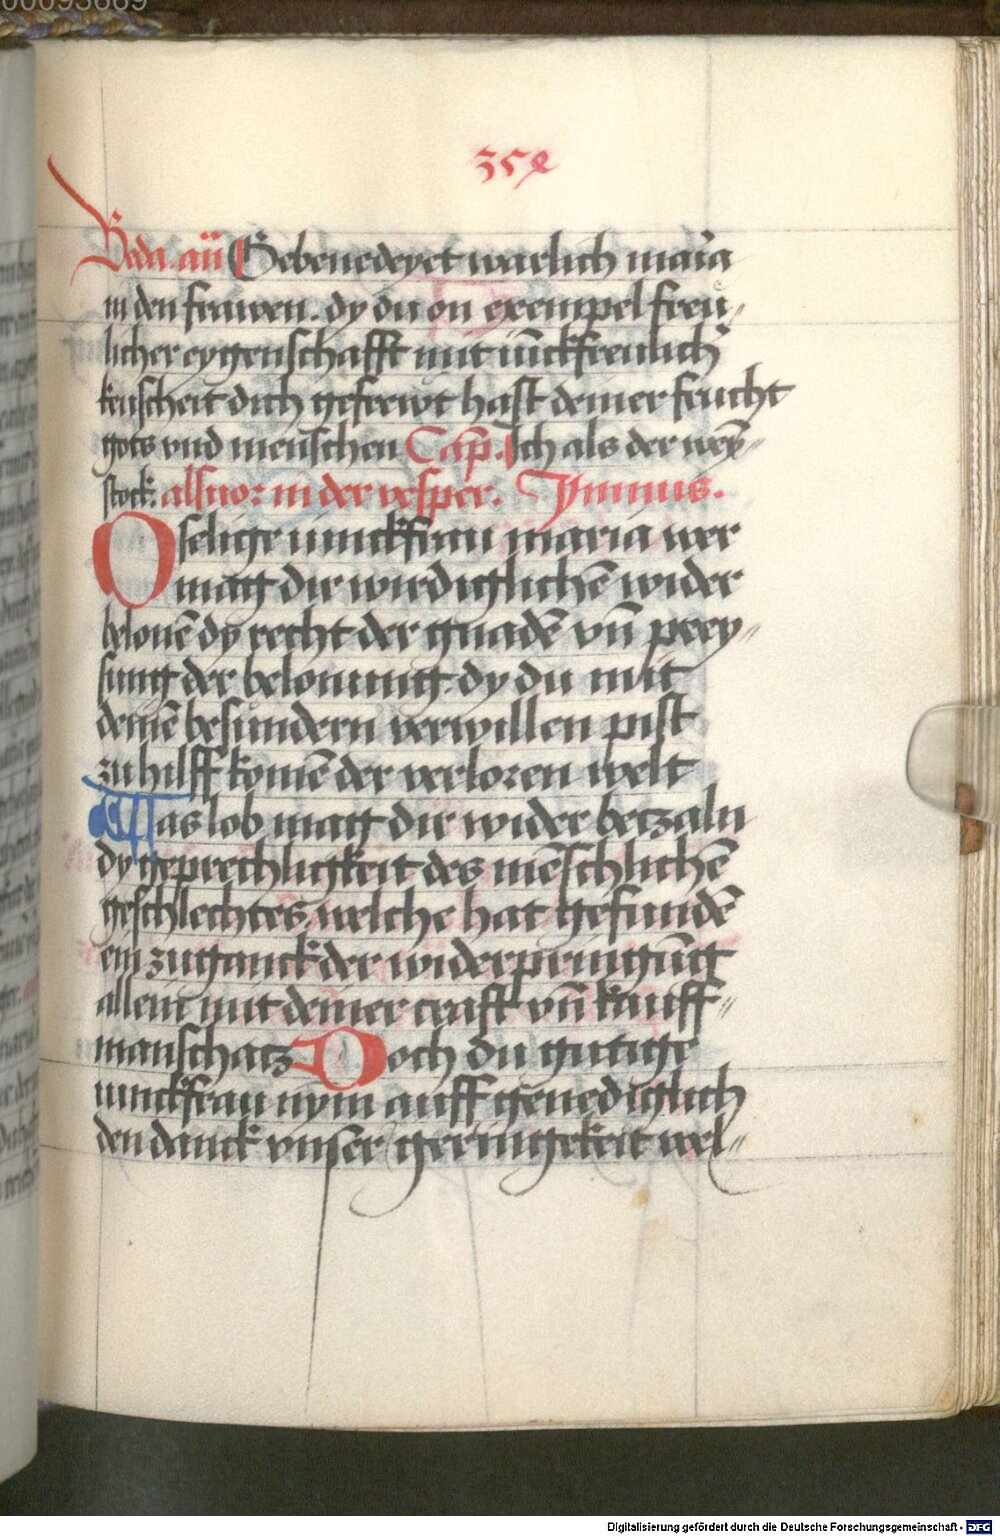 00093669
35
Beda. añ Gebenedeyet warlich maria
in den frawen. dy du on exempel freu„
licher eygenschafft mit iunckfreulicher
keuscheit dich gefrewt hast deiner frucht
gots vnd menschen Cap. Ich als der wey„
stock. als uor in der vesper. Ymnus.
O selige iunckfrau maria wer
mag dir wirdiglichē wider
belonē dy recht der gnadē vñ prey„
sung der belonung. dy du mit
deinē besundern verwillen pist
zu hilff komē der verloren welt
Was lob mag dir wider betzaln
dy geprechligkeit des mēschlichē
geschlechtes. welche hat gefundē
ein zuganck der widerpringūg
allein mit deiner craft vñ kauff„
manschatz Doch du gutige
iunckfrau nym auff genediglich
den danck vnser geringekeit wel„
Digitalisierung gefördert durch die Deutsche Forschungsgemeinschaft - DFG